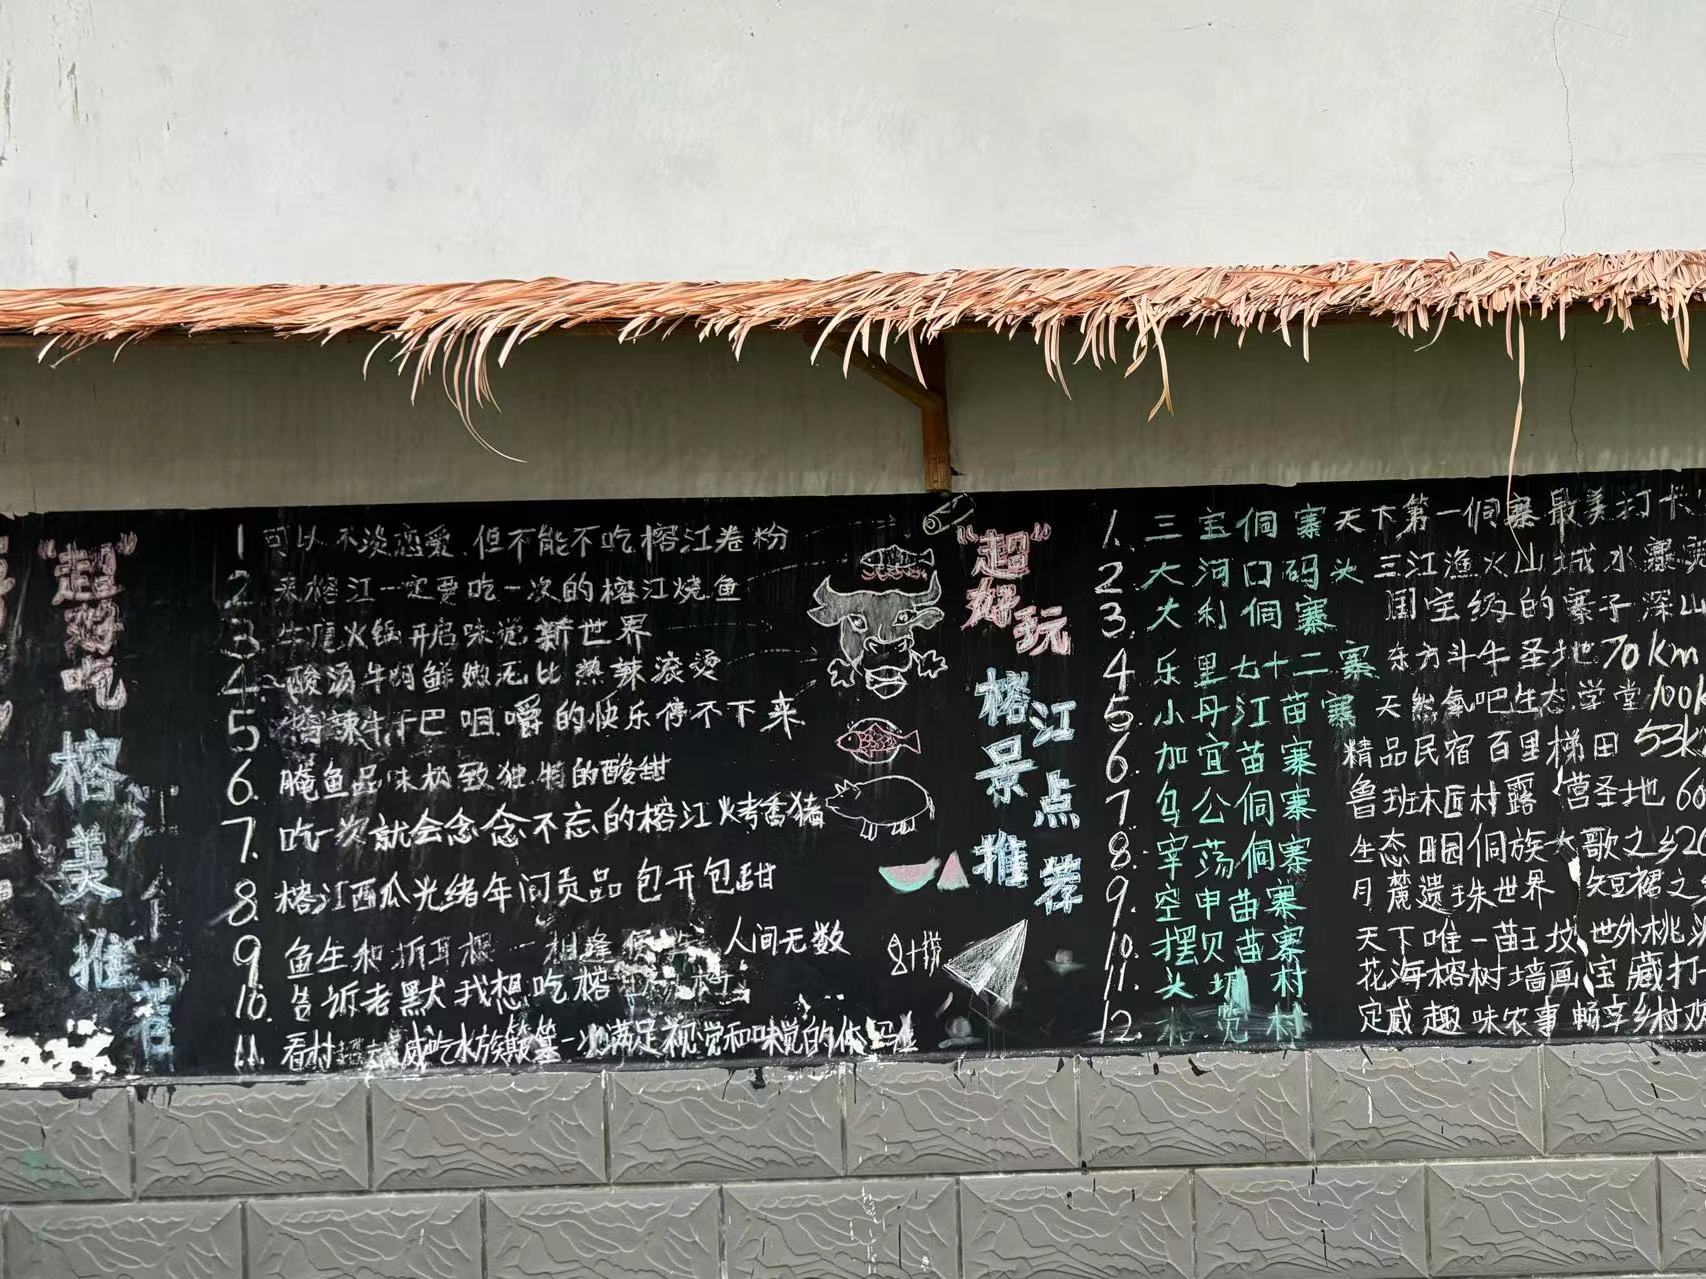 "超"好吃
榕江美推荐
1 可以不谈恋爱.但不能不吃榕江卷粉
2 来榕江一定要吃一次的榕江烧鱼
3 牛瘪火锅开启味觉新世界
4. 酸汤牛肉鲜嫩无比热辣滚烫
5 香辣牛干巴咀嚼的快乐停不下来
6. 腌鱼品味极致独特的酸甜
7. 吃一次就会念念不忘的榕江烤香猪
8. 榕江西瓜光绪年间贡品包开包甜
9 鱼生和折耳根一相逢便 人间无数
10. 告诉老默我想吃榕
11. 看村 威吃水族簸箕一次满足视觉和味觉的体
"超"好玩
榕江景点推荐
1. 三宝侗寨 天下第一侗寨最美打卡
2. 大河口码头 三江渔火山城水寨
3. 大利侗寨 国宝级的寨子深山
4 乐里七十二寨 东方斗牛圣地70km
5. 小丹江苗寨 天然氧吧生态学堂100k
6. 加宜苗寨 精品民宿百里梯田53k
7 乌公侗寨 鲁班木匠村露营圣地60
8. 宰荡侗寨 生态田园侗族大歌之乡20
9. 空申苗寨 月麓遗珠世界短裙之
10. 摆贝苗寨 天下唯一苗王坟世外桃
11. 头塘村 花海榕树墙画宝藏打
12. 村 定威趣味农事畅享乡村欢